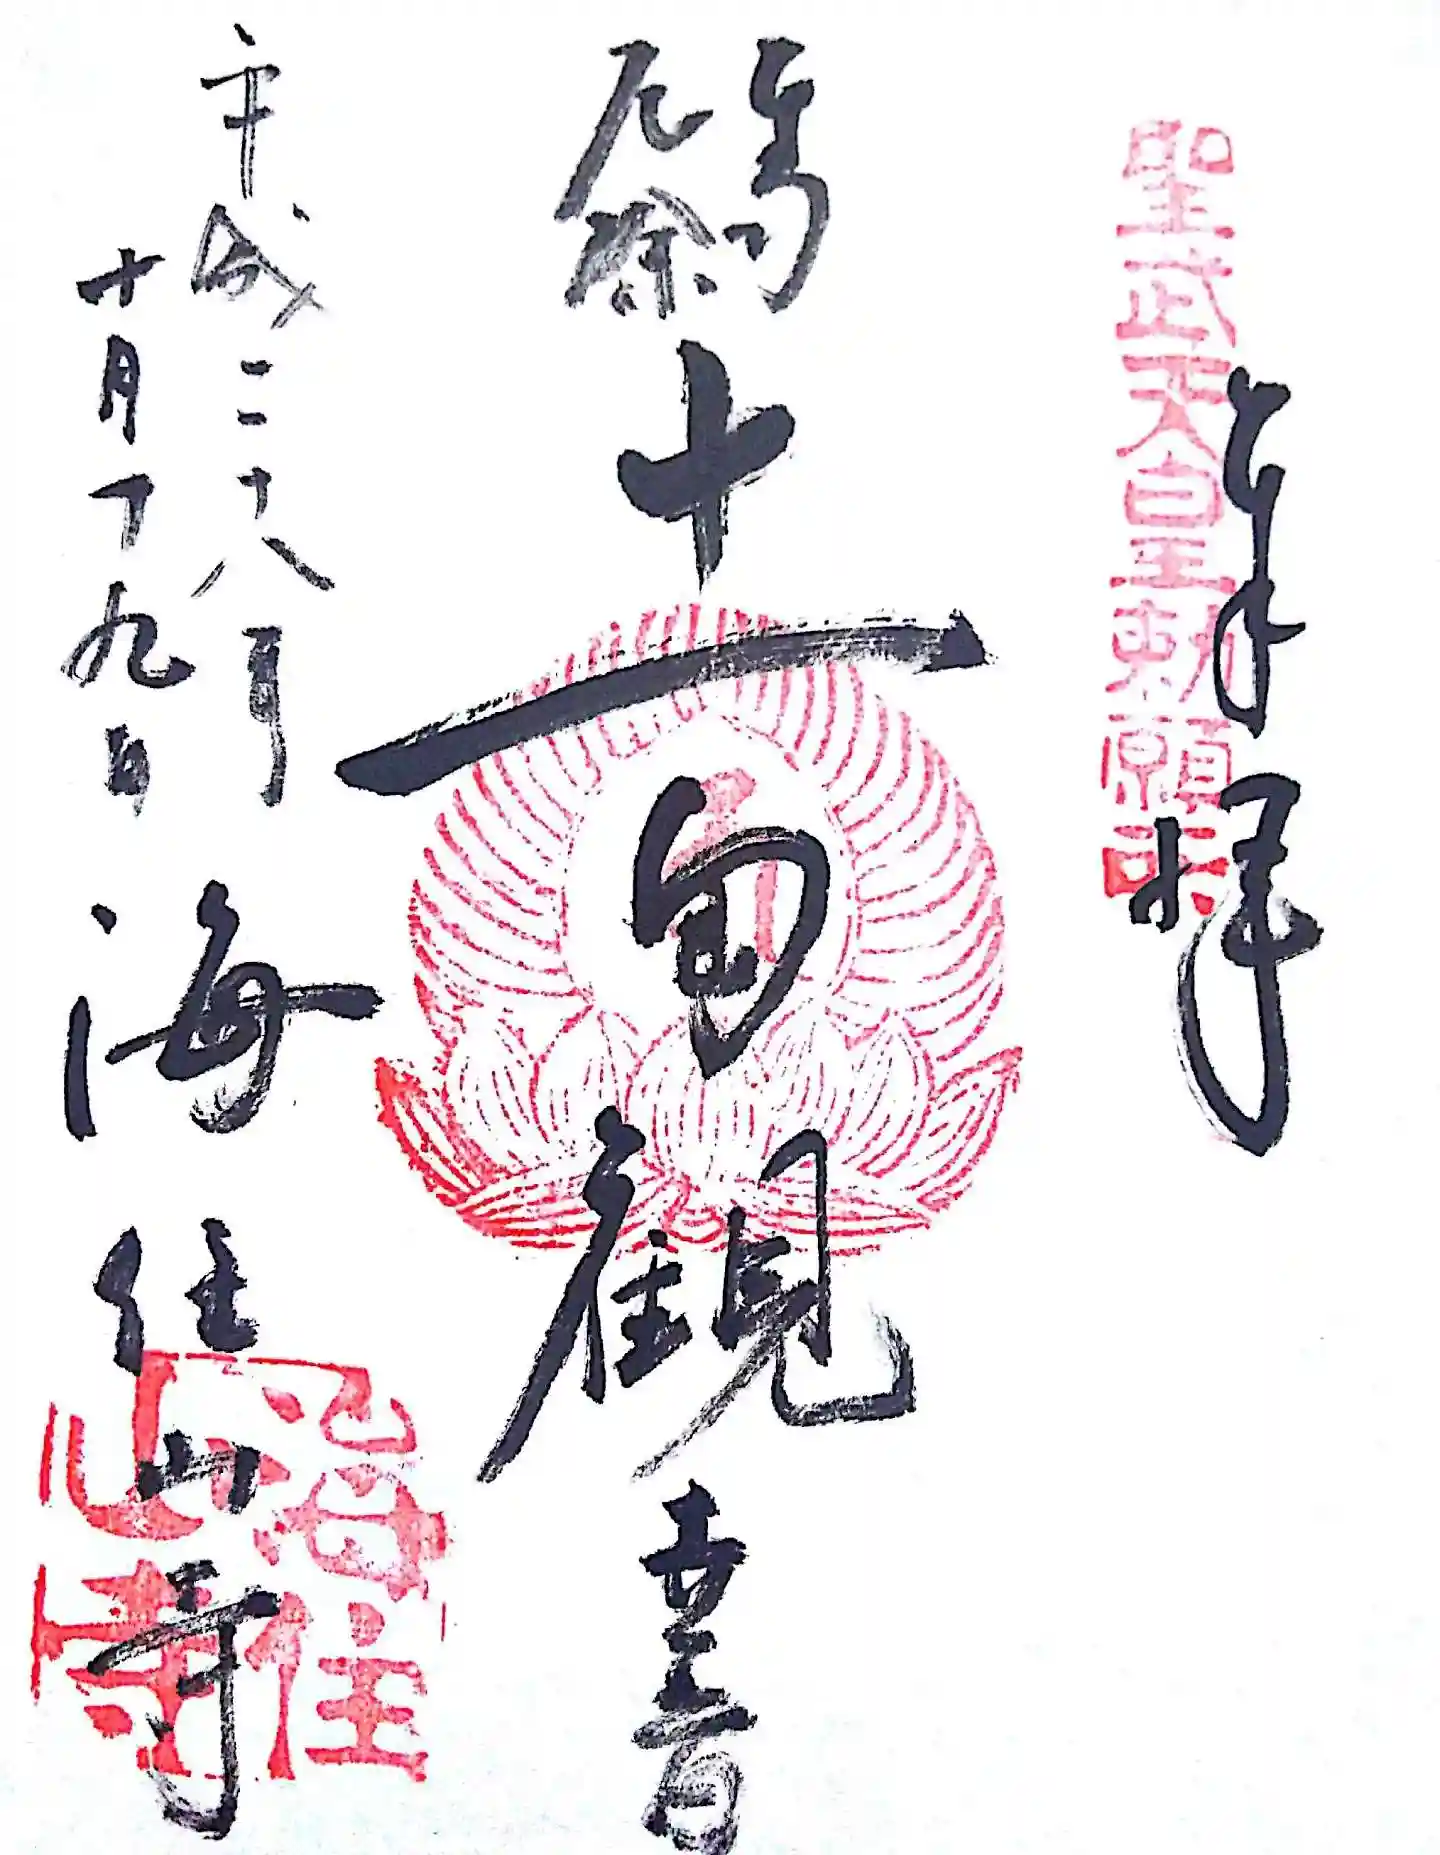 聖武天皇勅願所
奉拝
厄除
十一面観世音
平成二十八年
十月十九日
海住山寺
海住山寺